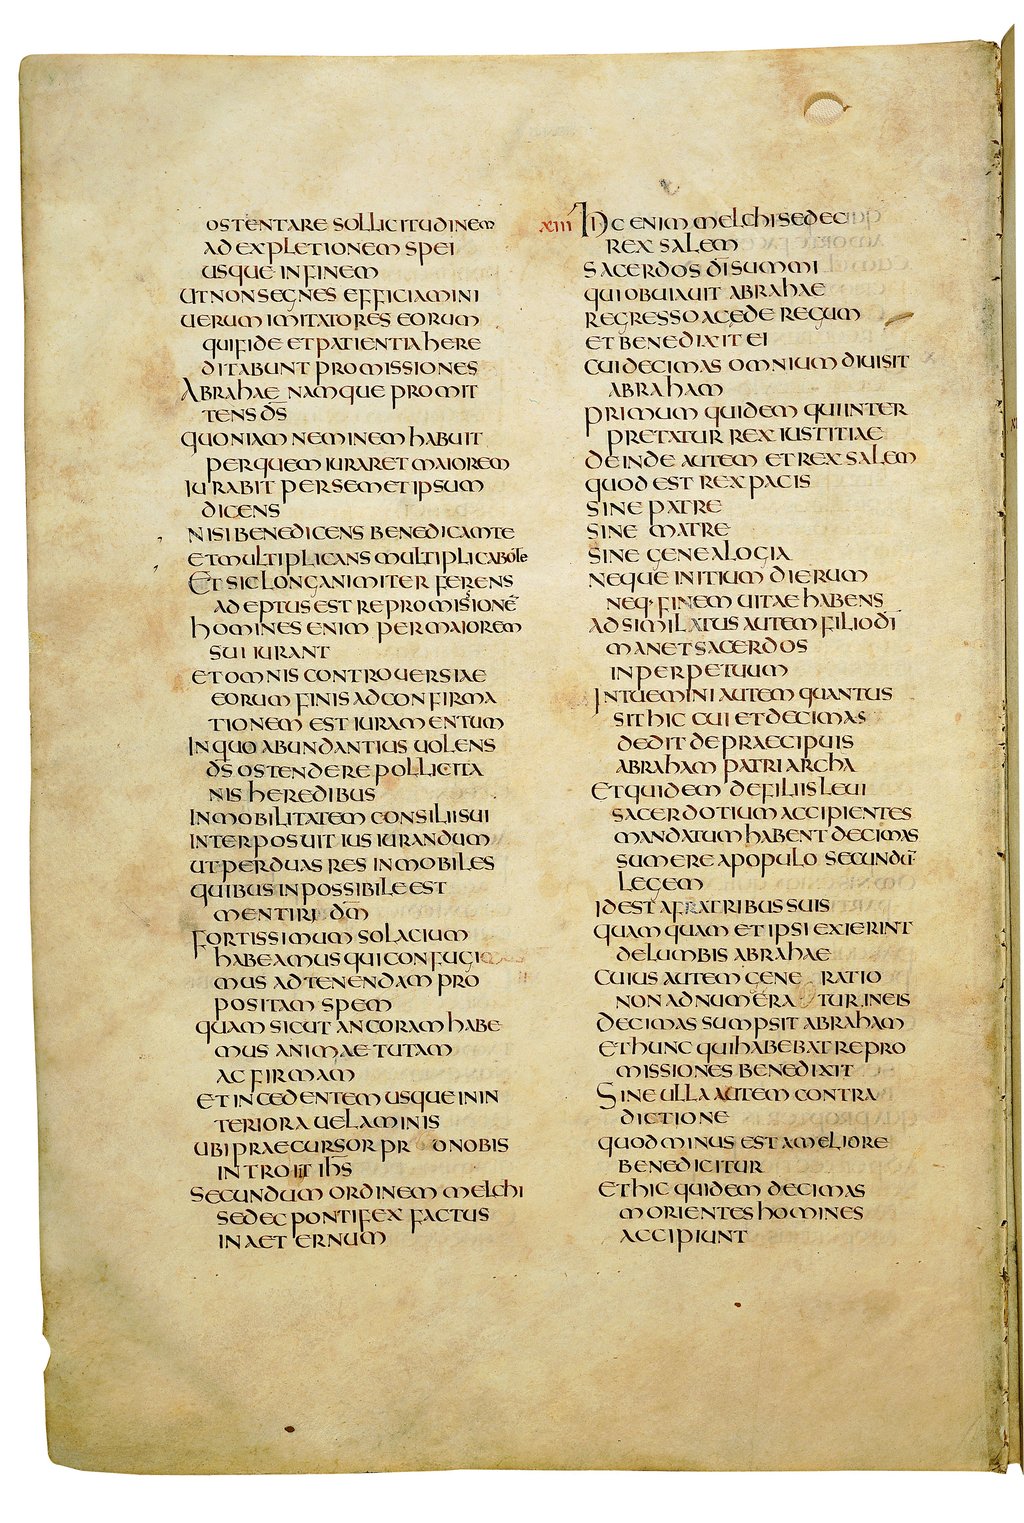 OSTENTARE SOLLICITUDINEM
AD EXPLETIONEM SPEI
USQUE IN FINEM
UT NON SEGNES EFFICIAMINI
UERUM IMITATORES EORUM
QUI FIDE ET PATIENTIA HERE
DITABUNT PROMISSIONES
ABRAHAE NAMQUE PROMIT
TENS D̅S
QUONIAM NEMINEM HABUIT
PER QUEM IURARET MAIOREM
IURABIT PER SEMETIPSUM
DICENS
NISI BENEDICENS BENEDICAM TE
ET MULTIPLICANS MULTIPLICABO TE
ET SIC LONGANIMITER FERENS
ADEPTUS EST REPROMISSIONE̅
HOMINES ENIM PER MAIOREM
SUI IURANT
ET OMNIS CONTROUERSIAE
EORUM FINIS AD CONFIRMA
TIONEM EST IURAMENTUM
IN QUO ABUNDANTIUS UOLENS
D̅S OSTENDERE POLLICITA
NIS HEREDIBUS
INMOBILITATEM CONSILII SUI
INTERPOSUIT IUSIURANDUM
UT PER DUAS RES INMOBILES
QUIBUS INPOSSIBILE EST
MENTIRI D̅M
FORTISSIMUM SOLACIUM
HABEAMUS QUI CONFUGI
MUS AD TENENDAM PRO
POSITAM SPEM
QUAM SICUT ANCORAM HABE
MUS ANIMAE TUTAM
AC FIRMAM
ET INCEDENTEM USQUE IN IN
TERIORA UELAMINIS
UBI PRAECURSOR PRO NOBIS
INTROIIT IH̅S
SECUNDUM ORDINEM MELCHI
SEDEC PONTIFEX FACTUS
IN AETERNUM
XIII HIC ENIM MELCHISEDEC
REX SALEM
SACERDOS D̅I SUMMI
QUI OBUIAUIT ABRAHAE
REGRESSO A CEDE REGUM
ET BENEDIXIT EI
CUI DECIMAS OMNIUM DIUISIT
ABRAHAM
PRIMUM QUIDEM QUI INTER
PRETATUR REX IUSTITIAE
DEINDE AUTEM ET REX SALEM
QUOD EST REX PACIS
SINE PATRE
SINE MATRE
SINE GENEALOGIA
NEQUE INITIUM DIERUM
NEQ· FINEM UITAE HABENS
ADSIMILATUS AUTEM FILIO D̅I
MANET SACERDOS
IN PERPETUUM
INTUEMINI AUTEM QUANTUS
SIT HIC CUI ET DECIMAS
DEDIT DE PRAECIPUIS
ABRAHAM PATRIARCHA
ET QUIDEM DE FILIIS LEUI
SACERDOTIUM ACCIPIENTES
MANDATUM HABENT DECIMAS
SUMERE A POPULO SECUNDU̅
LEGEM
ID EST A FRATRIBUS SUIS
QUAM QUAM ET IPSI EXIERINT
DE LUMBIS ABRAHAE
CUIUS AUTEM GENERATIO
NON ADNUMERATUR IN EIS
DECIMAS SUMPSIT ABRAHAM
ET HUNC QUI HABEBAT REPRO
MISSIONES BENEDIXIT
SINE ULLA AUTEM CONTRA
DICTIONE
QUOD MINUS EST A MELIORE
BENEDICITUR
ET HIC QUIDEM DECIMAS
MORIENTES HOMINES
ACCIPIUNT